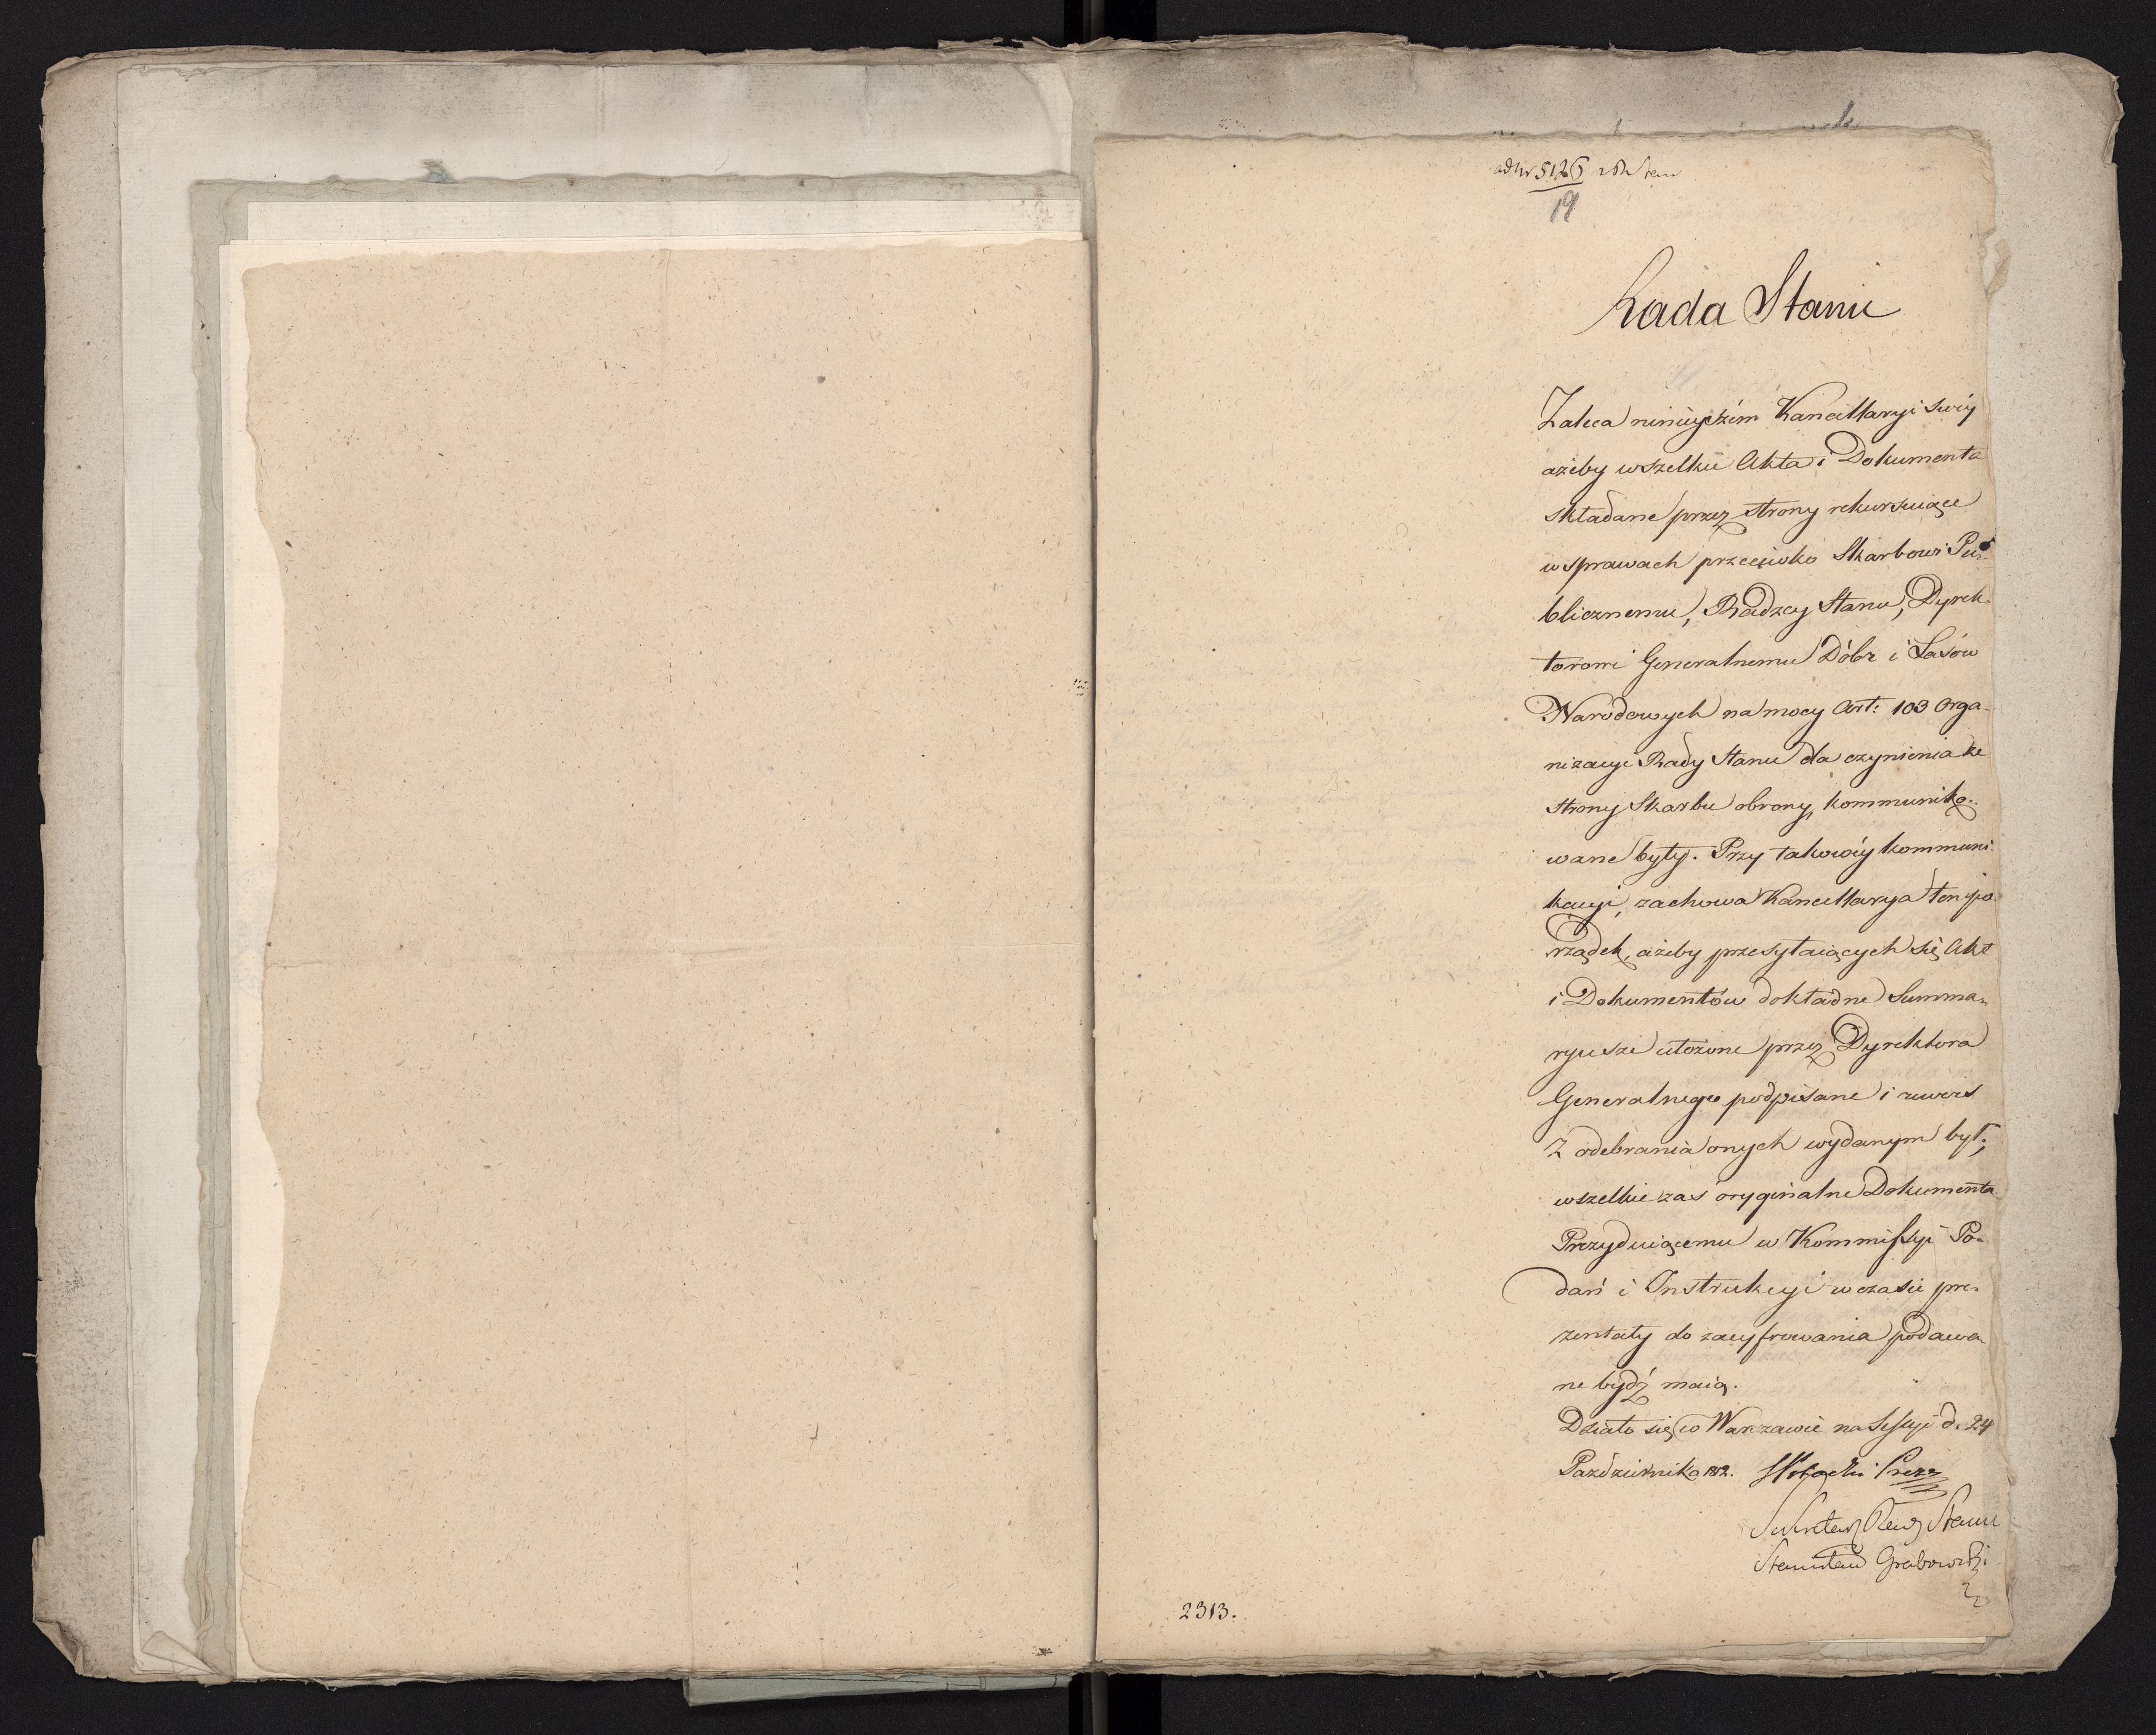 ad Nr 5126
19
Rada Stanu
Zaleca ninieyszém Kancellaryi swéy
ażeby wszelkie Akta i Dokumenta
składane przez strony rekursuiące
w sprawach przeciwko Skarbowi Pu-
blicznemu, Radzcy Stanu, Dyrek-
torowi Generalnemu Dóbr i Lasów
Narodowych na mocy Art: 103 Orga-
nizacyi Rady Stanu dla czynienia ze
strony Skarbu obrony, kommuniko-
wane były. Przy takowéy kommuni-
kacyi, zachowa Kancellarya ten po-
rządek, ażeby przesyłaiących się Akt
i Dokumentów dokładne Summa-
ryusze ułożone przez Dyrektora
Generalnego podpisane i rewers
z odebrania onych wydanym był;
wszelkie zaś oryginalne Dokumenta
Prezyduiącemu w Kommissyi Po-
dań i Instrukcyi w czasie pre-
zentaty do zacyfrowania podawa-
ne bydź maią.
Działo się w Warszawie na Sessyi d. 24
Października 1812. Prezes
Sekretarz Rady Stanu
Stanisław Grabowski
2313.